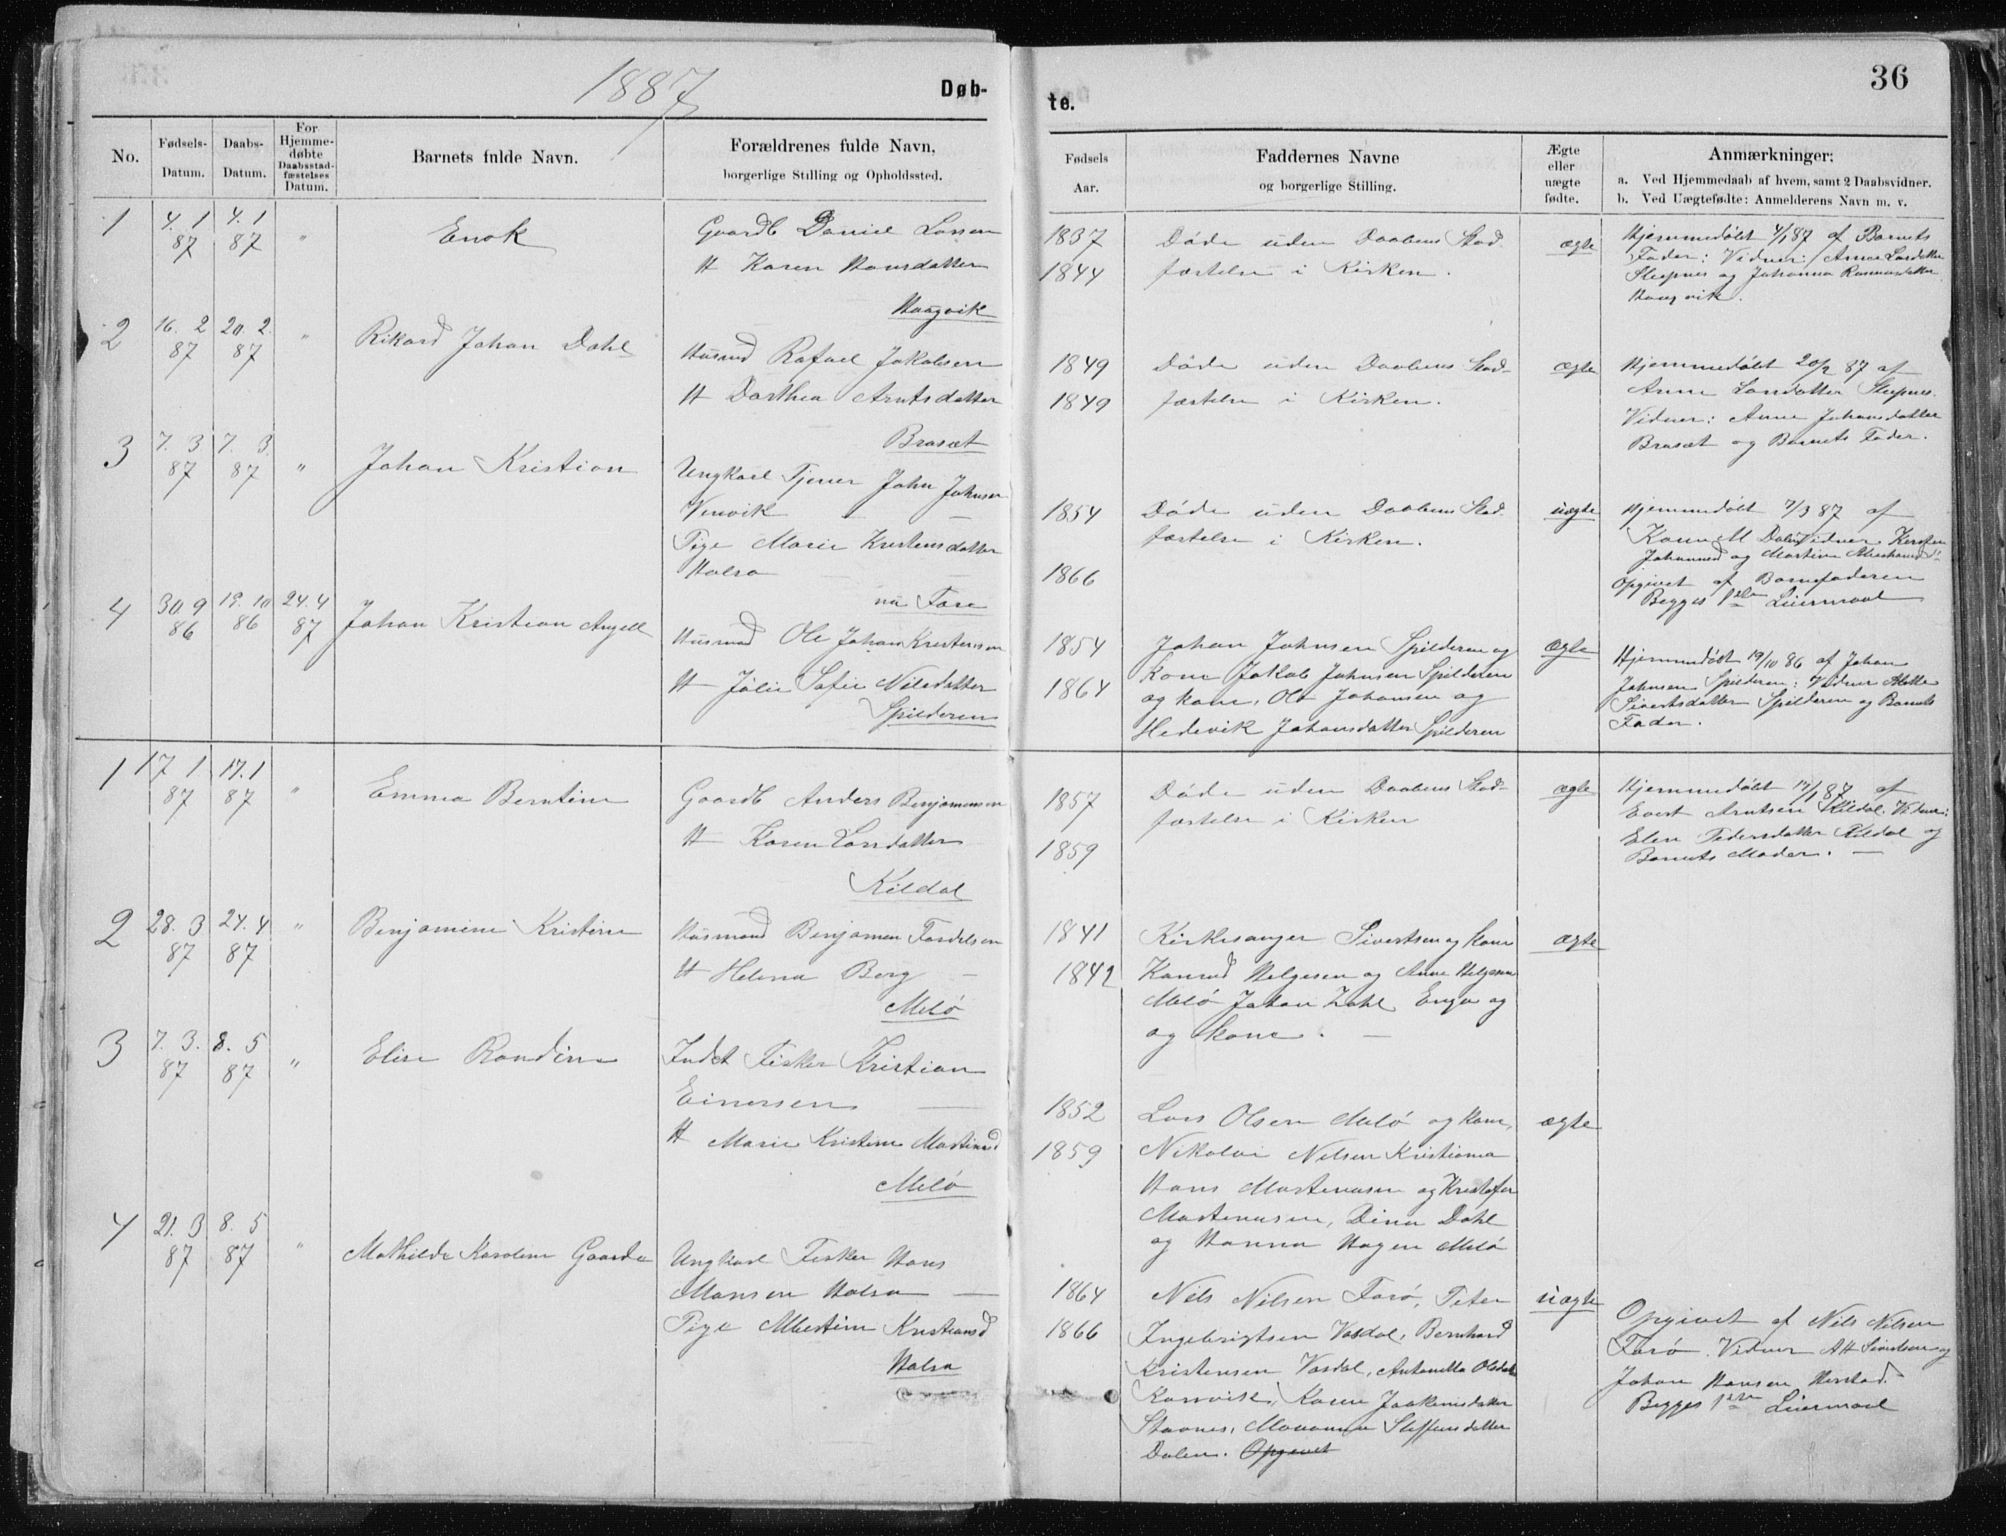 1887
Døb-
te.
36
No.
Fødsels-
Datum.
Daabs-
Datum.
For
Hjemme-
døbte
Daabsstad-
fæstelses
Datum.
Barnets fulde Navn.
Forældrenes fulde Navn,
borgerlige Stilling og Opholdssted.
Fødsels
Aar.
Faddernes Navne
og borgerlige Stilling.
Ægte
eller
uægte
fødte.
Anmærkninger:
a. Ved Hjemmedaab af hvem, samt 2 Daabsvidner.
b. Ved Uægtefødte: Anmelderens Navn m. v.
1
4. 1
87
4. 1
87
"
Enok
Gaardb Daniel Larsen
H Karen Hansdatter
Haagvik
1837
1844
Døde uden Daabens Stad-
fæstelse i Kirken.
ægte
Hjemmedøbt 4/1 87 af Barnets
Fader: Vidner: Anne Larsdatter
Sleepnes og Johanna Rasmusdatter
Haagvik.
2
16. 2
87
20. 2
87
"
Rikard Johan Dahl
Husmd Rafael Jakobsen
H Dorthea Arntsdatter
Brasæt
1849
1849
Døde uden Daabens Stad-
fæstelse i Kirken.
ægte
Hjemmedøbt 20/2 87 af
Anne Larsdatter Sleepnes.
Vidner: Anne Johansdatter
Brasæt og Barnets Fader.
3
7. 3
87
7. 3
87
"
Johan Kristian
Ungkarl Tjener John Johnsen
Venvik —
Pige Marie Kristensdatter
Halsa —
nu Fore
1854
1866
Døde uden Daabens Stad-
fæstelse i Kirken.
uægte
Hjemmedøbt 7/3 87 af
Johannesd og Martine
Opgivet af Barnefaderen
Begges 1ste Leiermaal
4
30. 9
86
19. 10
86
24. 4
87
Johan Kristian Angell
Husmd Ole Johan Kristensen
H Julie Sofie Nilsdatter
Spilderen
1854
1864
Johan Johnsen Spilderen og
Kone Jakob Johnsen Spilderen
og kone, Ole Johansen og
Hedevik Johansdatter Spilderen
ægte
Hjemmedøbt 19/10 86 af Johan
Johnsen Spilderen: Vidner
Sivertsdatter Spilderen og Barnets
Fader.
1
17 1
87
17. 1
87
"
Emma Berntine
Gaardb Anders Benjaminsen
H Karen Larsdatter
Kildal
1857
1859
Døde uden Daabens Stad-
fæstelse i Kirken
ægte
Hjemmedøbt 17/1 87 af
Evert Arntsen Kildal. Vidner:
Elen Pedersdatter Kildal og
Barnets Moder. —
2
28. 3
87
24. 4
87
"
Benjamine Kristine
Husmand Benjamin
H Helena Berg —
Melø
1841
1842
Kirkesanger Sivertsen og kone
Konrad Helgesen og Anne Helgesen
Melø Johan Zahl Enga og
og kone. —
ægte
3
7. 3.
87
8. 5
87
"
Elise Randine
Indst Fisker Kristian
Einersen —
H Marie Kristine Martinusd
Melø
1852
1859
Lars Olsen Melø og kone,
Nikolai Nilsen Kristiania
Hans Martinusen og Kristofer
Martinusen, Dina Dahl
og Hanna Hagen Melø
ægte
4
21. 3
87
8. 5
87
"
Mathilde Karoline Gaarda
Ungkarl Fisker Hans
Monsen Halsa —
Pige Albertine Kristiansd
Halsa
1864
1866
Nils Nilsen Forø, Peter
Ingebrigtsen Vasdal, Bernhard
Kristensen Vasdal, Antonette Olsdatt
Karen Joakimsdatter
Stavnes, Marianna Steffensdatter
Dalen. Opgivet
uægte
Opgivet af Nils Nilsen
Forø. Vidner AH Sivertsen og
Johan Hansen
Begges 1ste Leiermaal